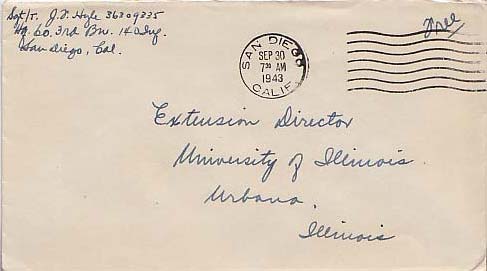 Sgt/T. J.T. Hoyle 36309335
Hq. Co. 3rd Bn. 140 Inf.
San Diego, Cal.
Free
SAN DIEGO
SEP 30
7 30 AM
1943
CALIF.
Extension Director
University of Illinois.
Urbana,
Illinois